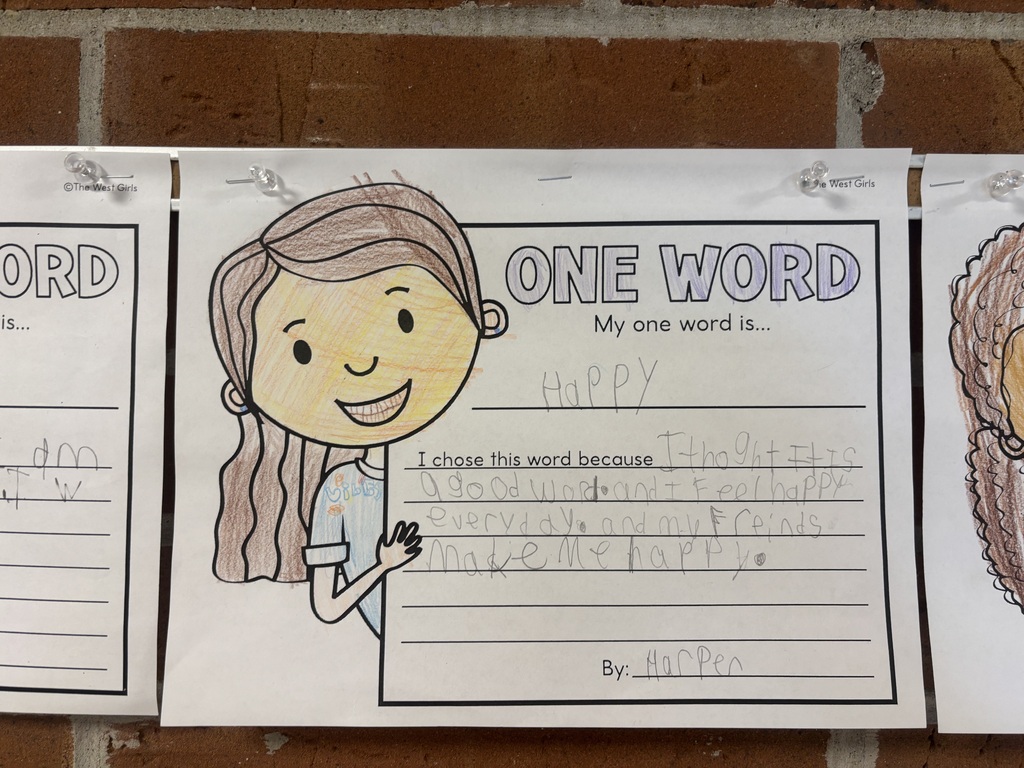 ©The West Girls
ORD
is...
The West Girls
ONE WORD
My one word is...
HaPPY
I chose this word because I thoght It is
a good word. and I Feel happy
every day. and my Freinds
make Me happy.
By: Harper